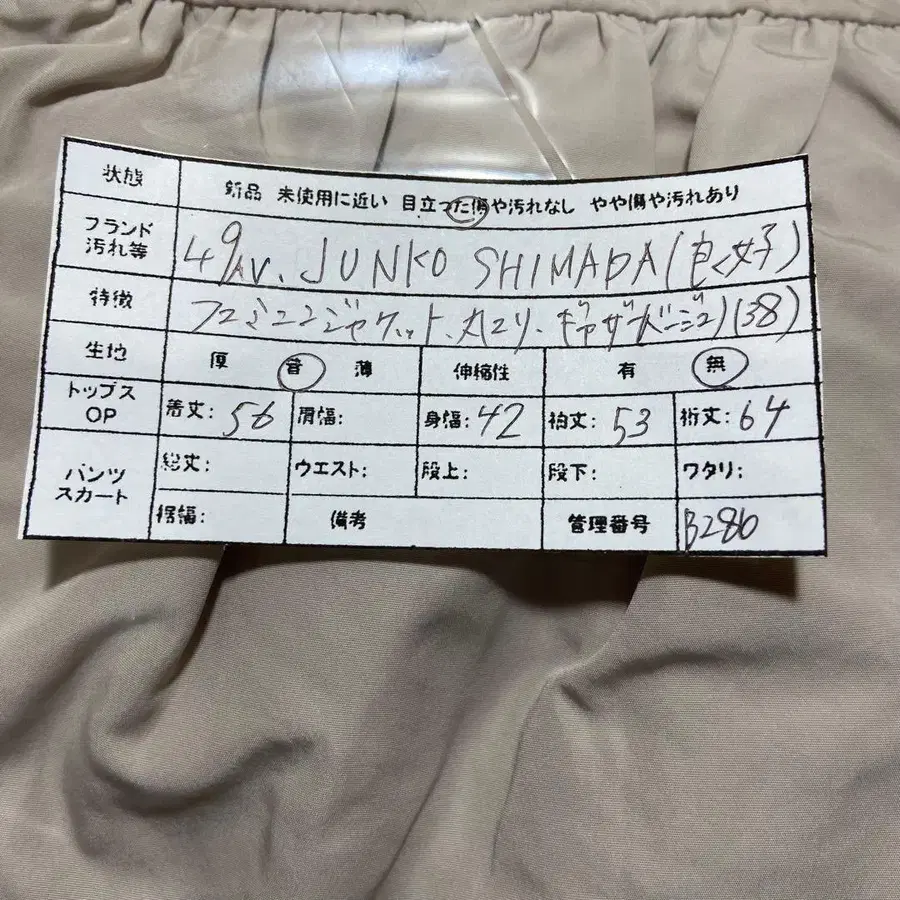 状態 新品 未使用に近い 目立った傷や汚れなし やや傷や汚れあり
ブランド 汚れ等 49AV. JUNKO SHIMADA (良好)
特徴 フェミニンジャケット、丸エリ、ギャザーベージュ (38)
生地 厚 普 薄 伸縮性 有 無
トップス OP 着丈: 56 肩幅: 身幅: 42 袖丈: 53 裄丈: 64
パンツ スカート 総丈: ウエスト: 股上: 股下: ワタリ:
裾幅: 備考 管理番号 B286